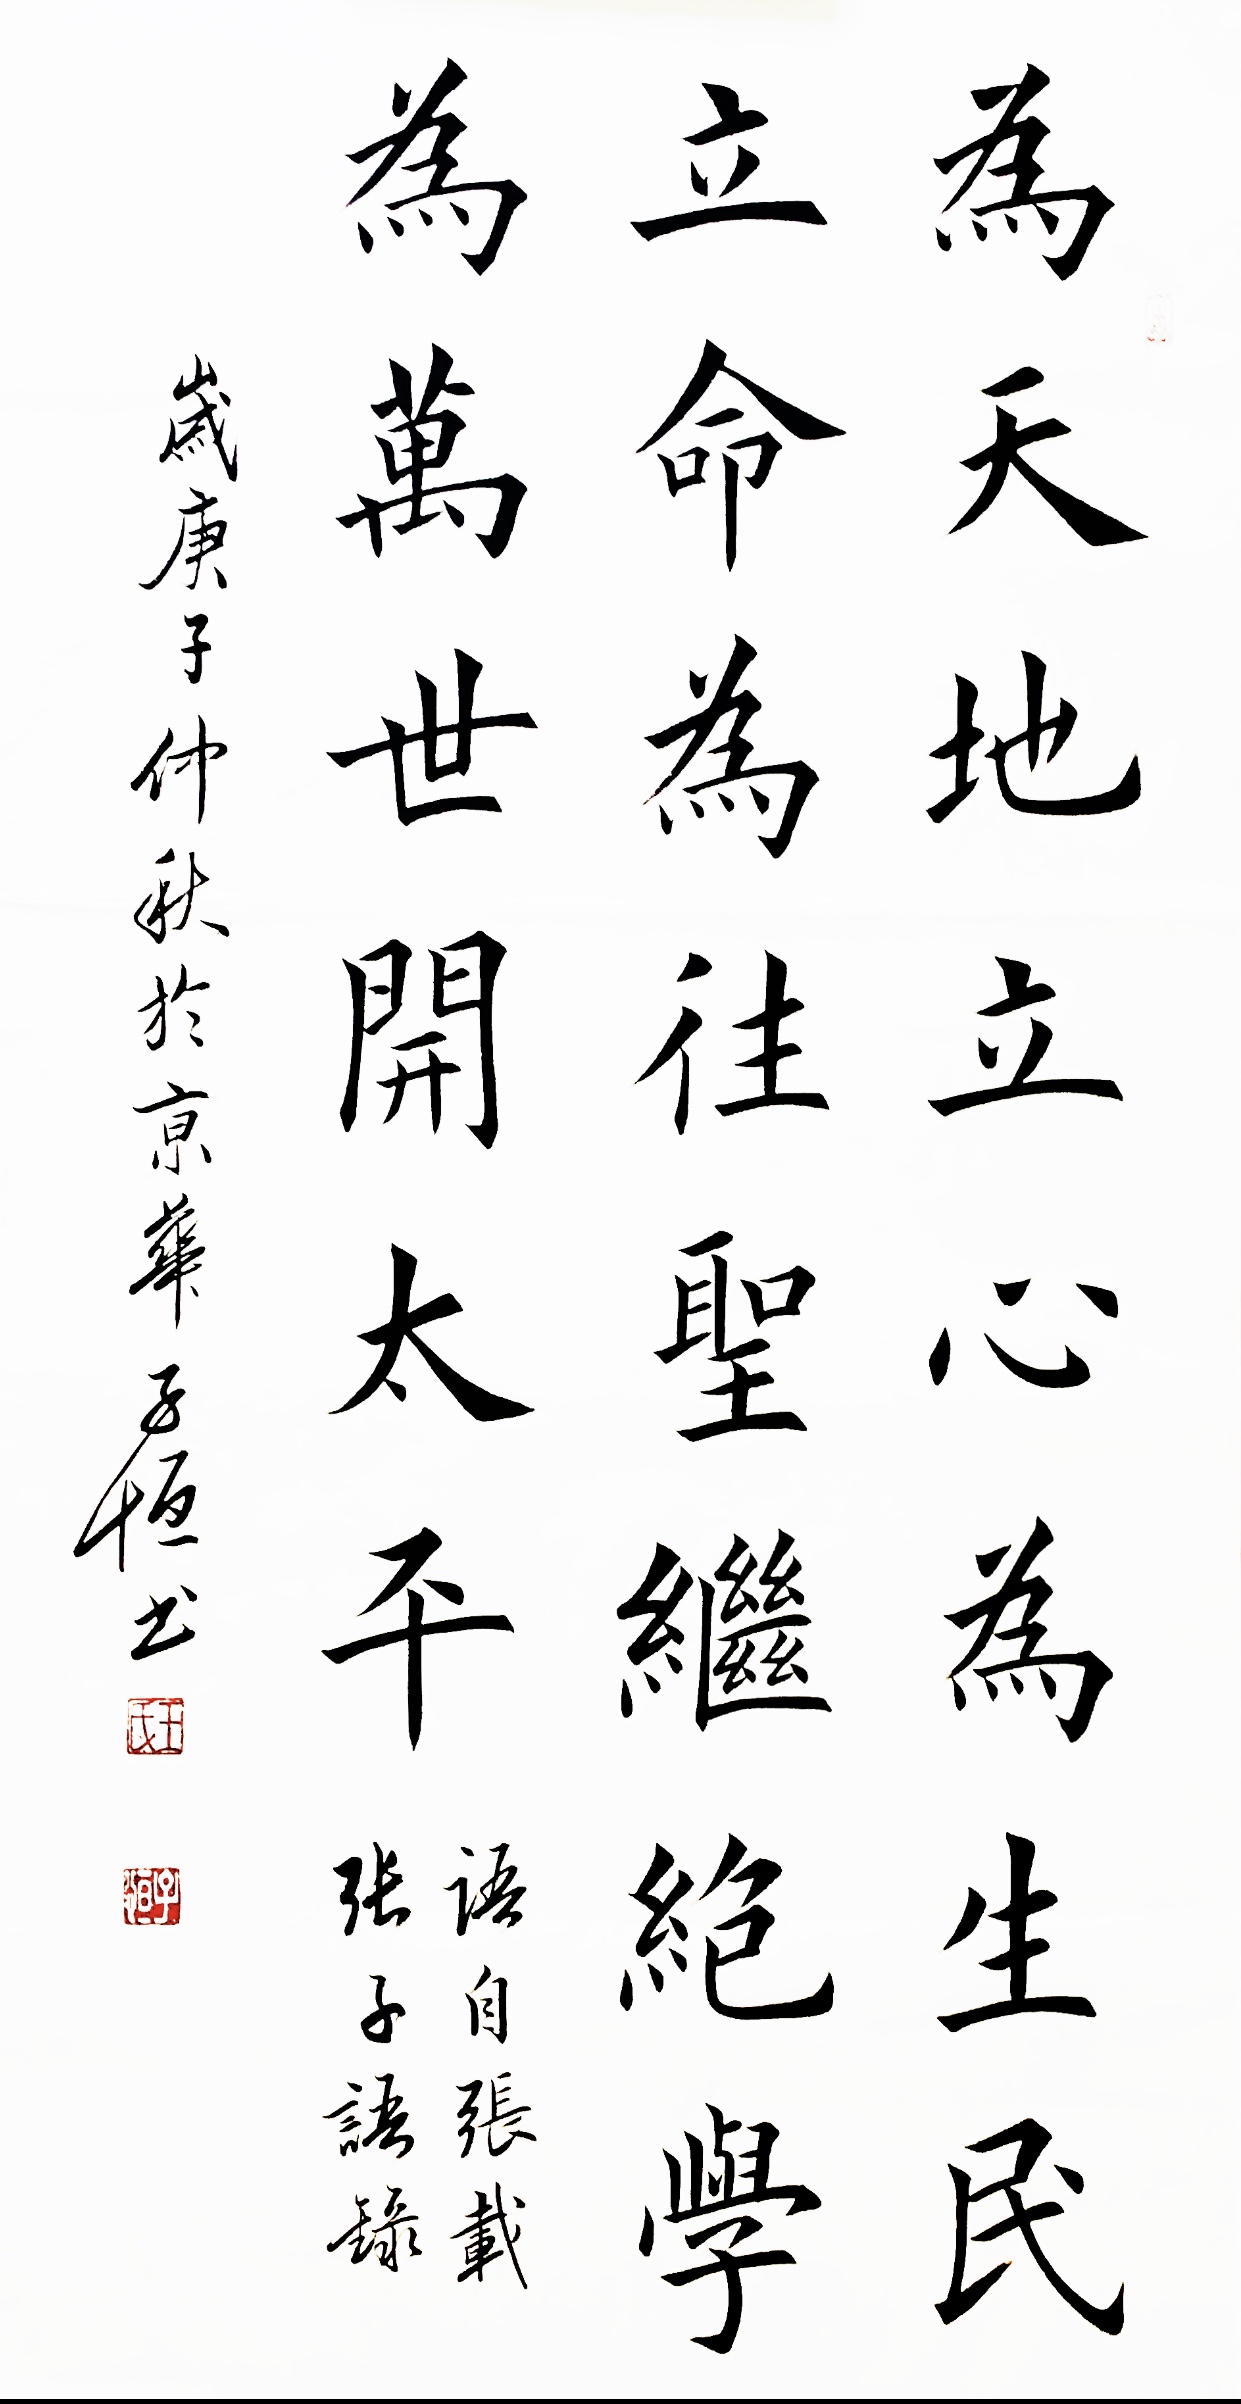 為天地立心為生民
立命為往聖繼絕學
為萬世開太平
語自張載
张子語錄
歲庚子仲秋於京華子恒书
王氏
子恒